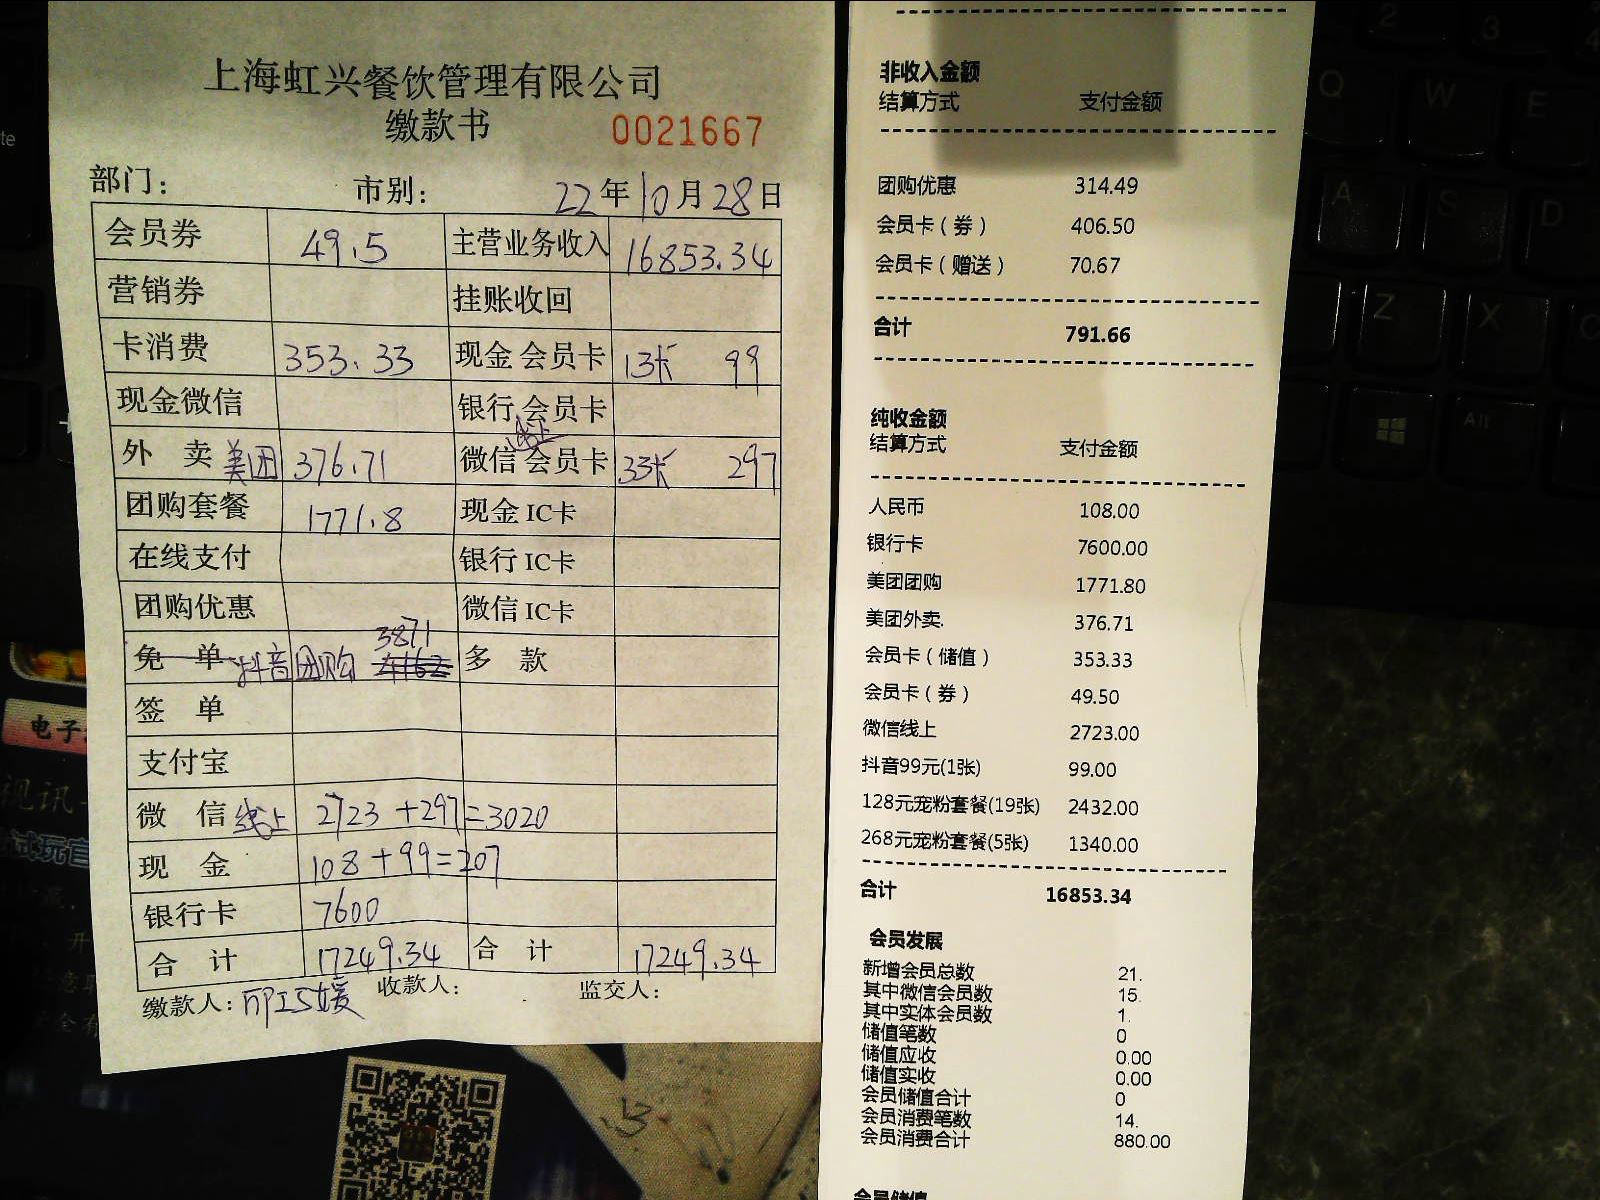 上海虹兴餐饮管理有限公司
缴款书 0021667
部门: 市别: 22年10月28日
会员券 49.5 主营业务收入 16853.34
营销券 挂账收回
卡消费 353.33 现金会员卡 1张 99
现金微信 银行会员卡
外卖美团 376.71 微信线上会员卡 3张 297
团购套餐 1771.8 现金IC卡
在线支付 银行IC卡
团购优惠 微信IC卡
免单 抖音团购 3871 多款
签单
支付宝
微信线上 2723+297=3020
现金 108+99=207
银行卡 7600
合计 17249.34 合计 17249.34
缴款人: 收款人: 监交人:
非收入金额
结算方式 支付金额
团购优惠 314.49
会员卡(券) 406.50
会员卡(赠送) 70.67
合计 791.66
纯收金额
结算方式 支付金额
人民币 108.00
银行卡 7600.00
美团团购 1771.80
美团外卖. 376.71
会员卡(储值) 353.33
会员卡(券) 49.50
微信线上 2723.00
抖音99元(1张) 99.00
128元宠粉套餐(19张) 2432.00
268元宠粉套餐(5张) 1340.00
合计 16853.34
会员发展
新增会员总数 21.
其中微信会员数 15.
其中实体会员数 1.
储值笔数 0
储值应收 0.00
储值实收 0.00
会员储值合计 0
会员消费笔数 14.
会员消费合计 880.00
会员储值
电子
视讯
试玩官
Q W E
A S D
Z X
Alt